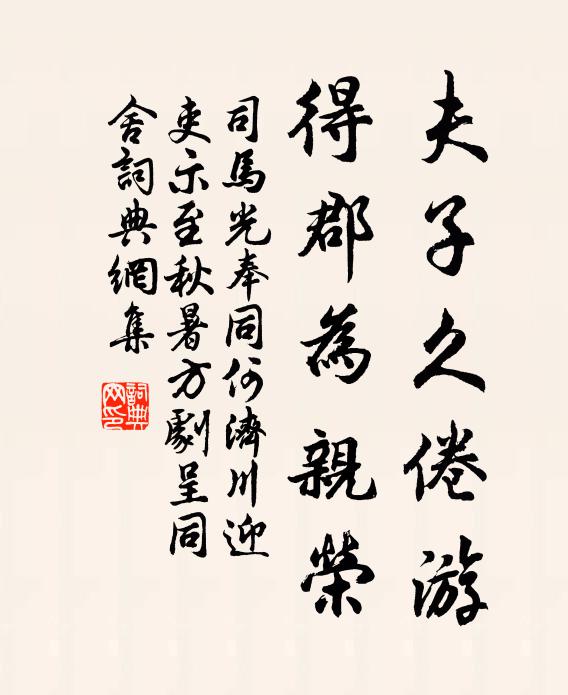 夫子久倦游
得郡為親榮
司馬光奉同何濟川迎
吏示至秋暑方劇呈同
舍詞典網集
詞典网印